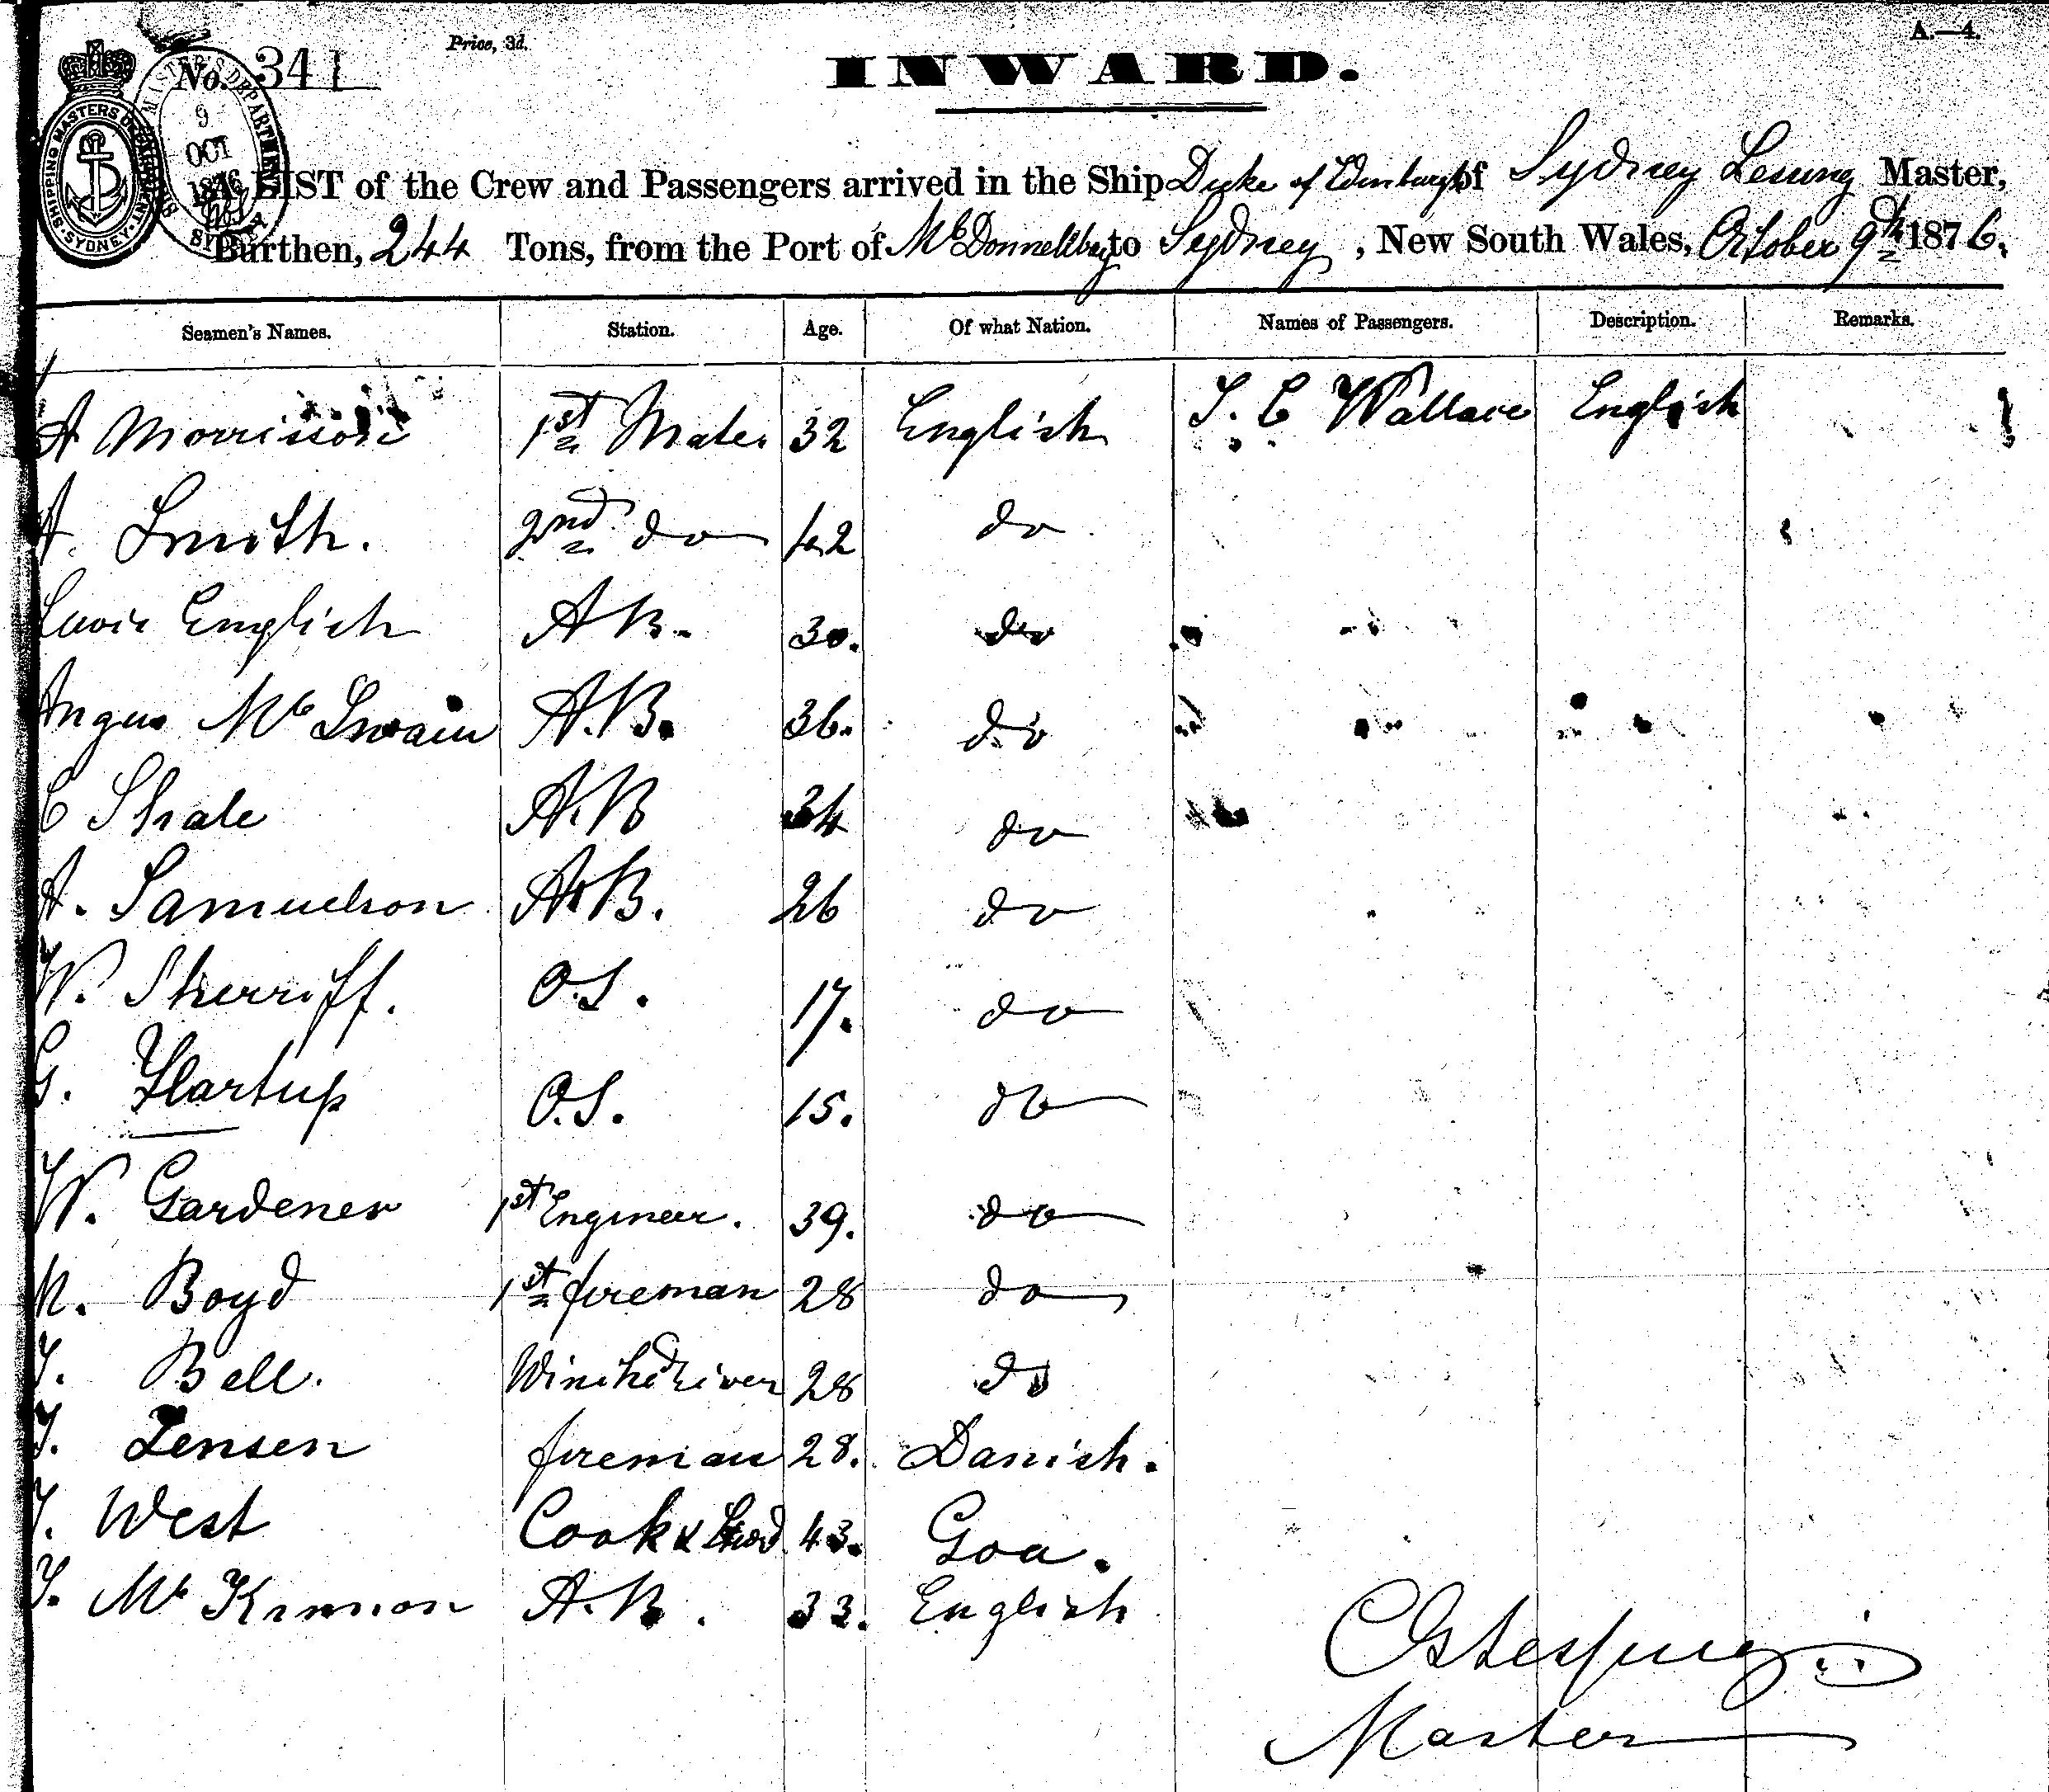 Price, 3d.
A.—4.
No. 341
INWARD.
SHIPPING MASTERS DEPARTMENT SYDNEY
9
OCT
1876
A LIST of the Crew and Passengers arrived in the Ship Duke of Edinburgh of Sydney Master,
Burthen, 244 Tons, from the Port of to Sydney, New South Wales, October 9th 1876.
Seamen's Names. Station. Age. Of what Nation. Names of Passengers. Description. Remarks.
A Morrisson 1st Mate 32 English Wallace English
A. Smith. 2nd do 42 do
English AB. 30. do
Angus Mc Swain A.B. 36. do
C Shale A.B 34 do
A. Samuelson A.B. 26 do
W. Sherriff. O.S. 17. do
G. O.S. 15. do
W. Gardener 1st Engineer. 39. do
Boyd 1st fireman 28 do
Bell. Winchdriver 28 do
fireman 28. Danish.
West Cook & Stwd 43. Goa.
Mc Kinnon A.B. 33. English
Master